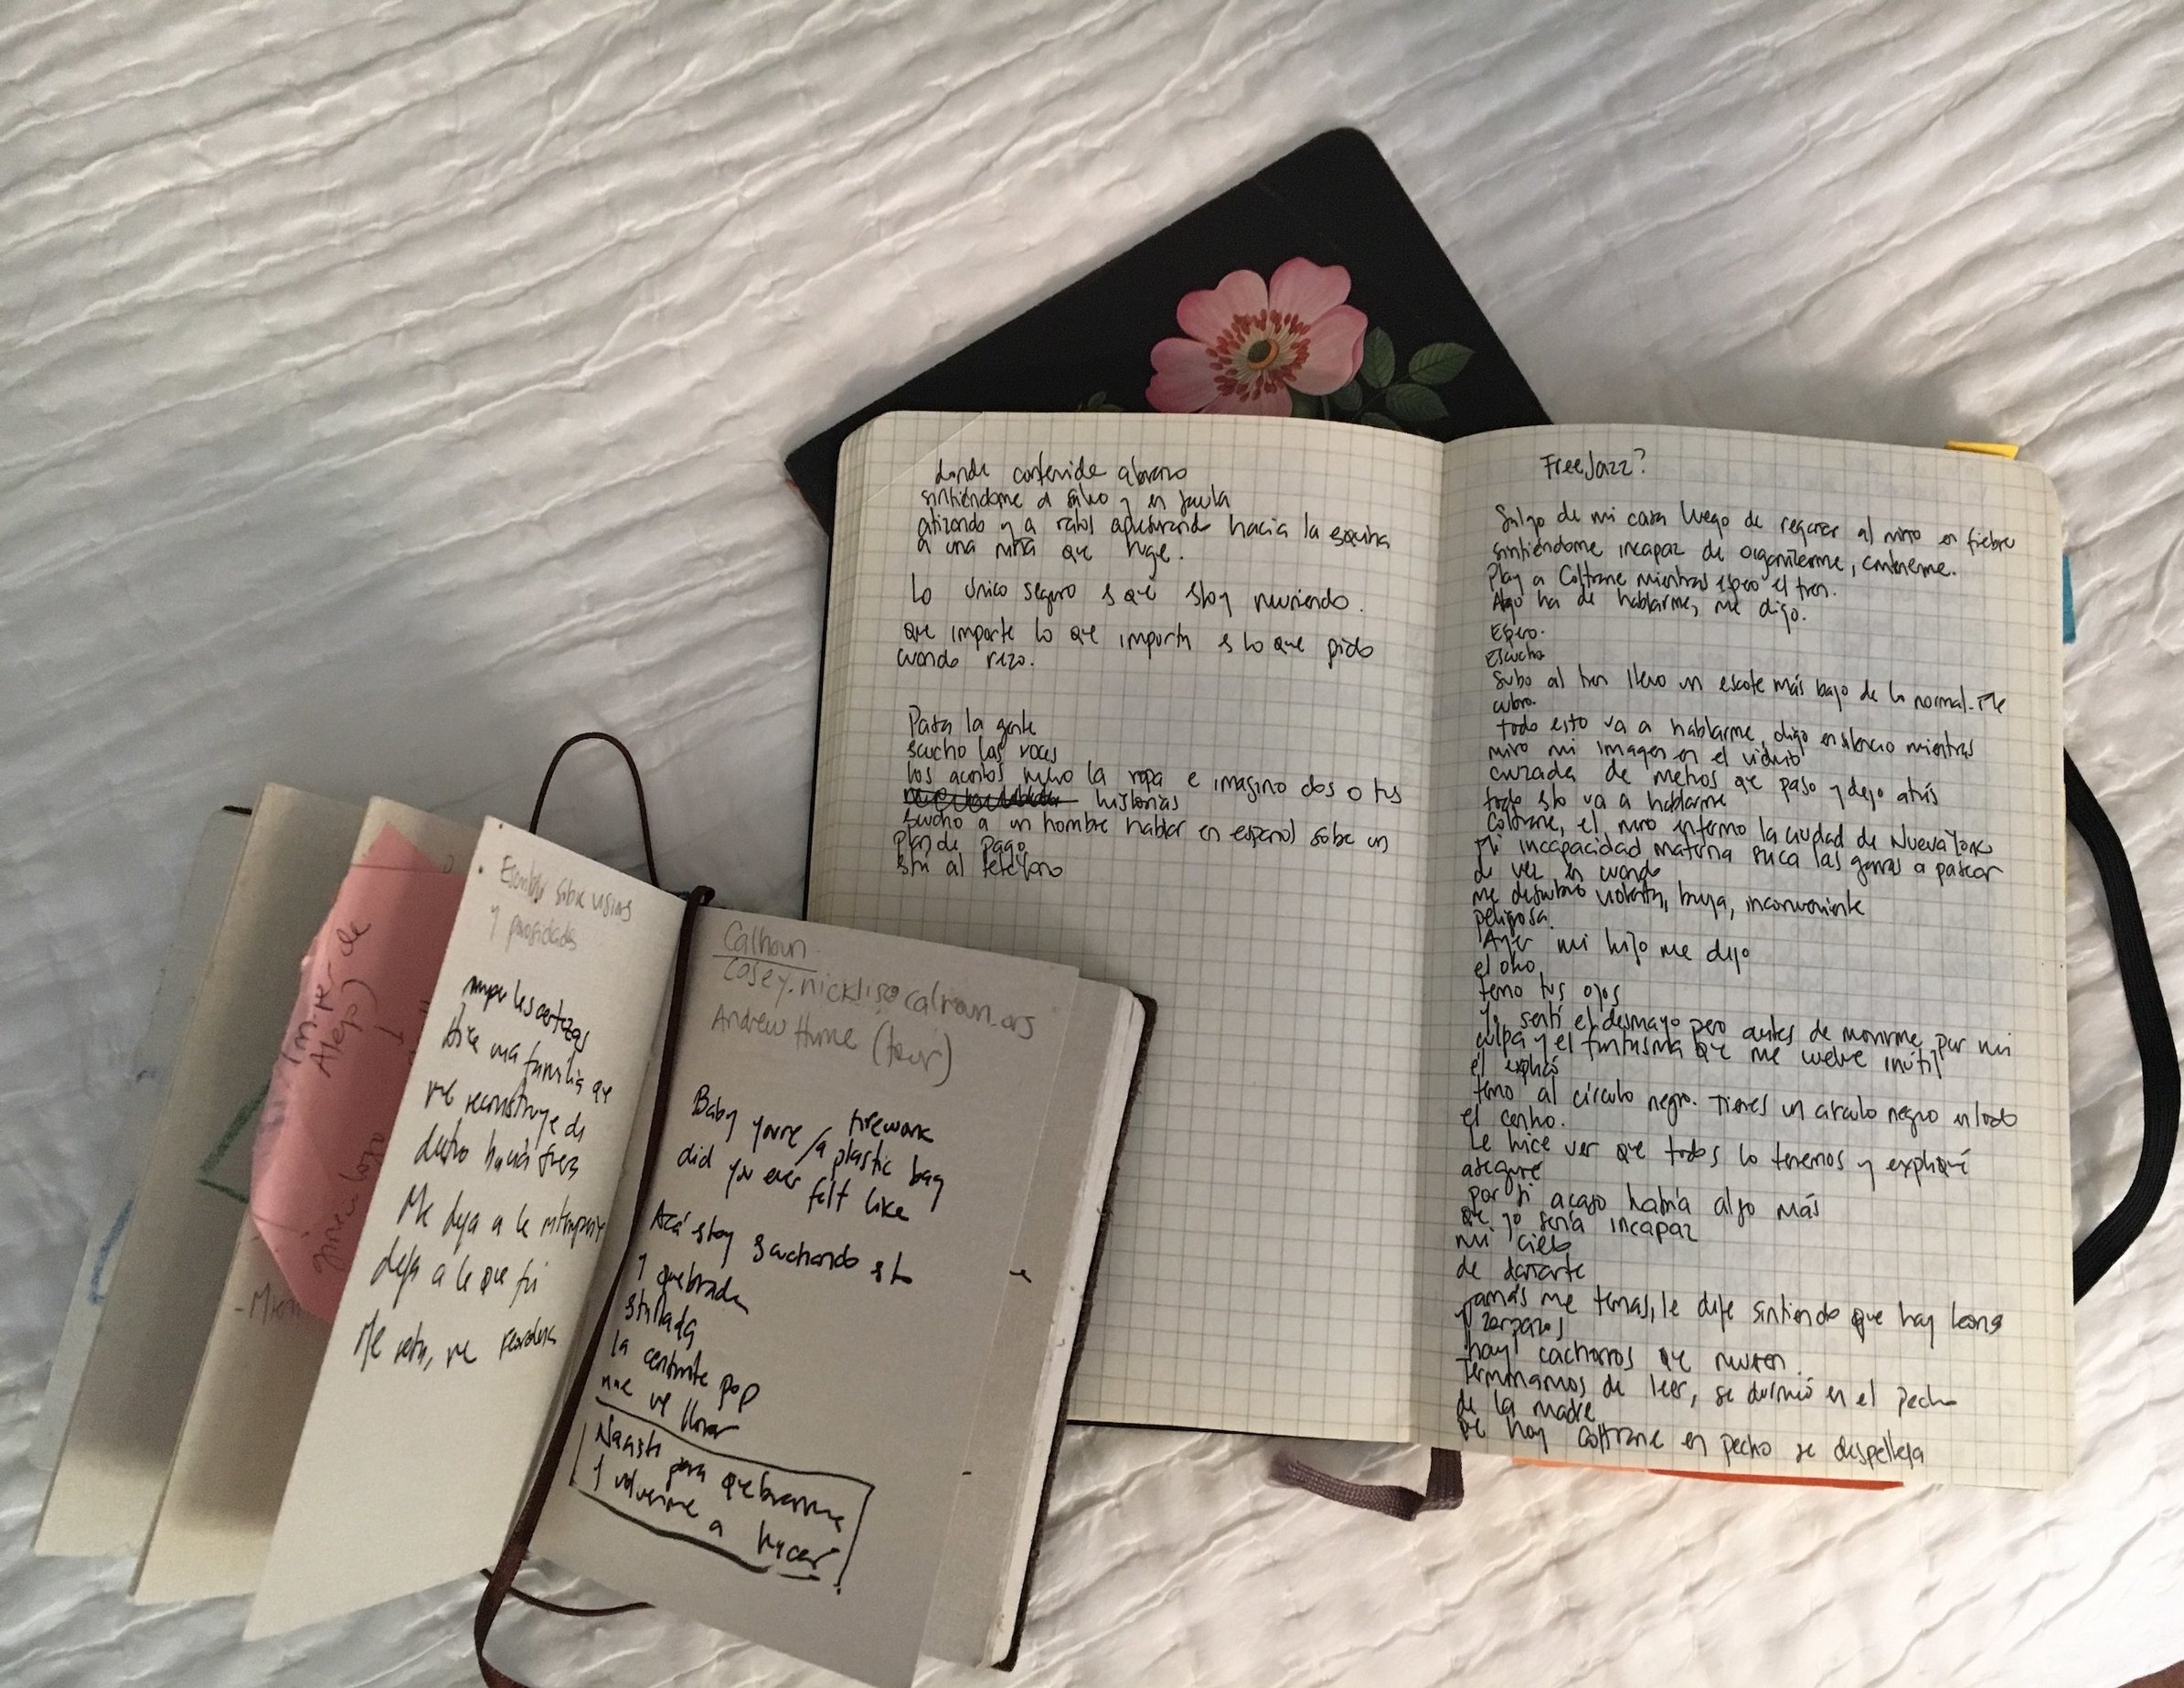 donde contenida abrazo
sintiéndome a salvo y en jaula
atizando y a ratos apresurando hacia la esquina
a una niña que huye.
Lo único seguro s que stoy muriendo.
que importe lo que importa s lo que pido
cuando rezo.
Pasa la gente
scucho las voces
los acentos miro la ropa e imagino dos o tres
historias
scucho a un hombre hablar en español sobe un
plan de pago
stá al teléfono
Free Jazz?
Salgo de mi casa luego de regresar al niño en fiebre
sintiéndome incapaz de organizarme, contenerme.
Play a Coltrane mientras espero el tren.
Algo ha de hablarme, me digo.
Espero.
Escucho
Subo al tren llevo un escote más bajo de lo normal. Me
cubro.
todo esto va a hablarme, digo en silencio mientras
miro mi imagen en el vidrio
cruzada de metros que paso y dejo atrás
todo sto va a hablarme
Coltrane, el niño enfermo la ciudad de Nueva York
Mi incapacidad materna saca las garras a pasear
de vez en cuando
me descubro violenta, bruja, inconveniente
peligrosa.
Ayer mi hijo me dijo
el otro,
temo tus ojos
Yo sentí el desmayo pero antes de morirme por mi
culpa y el fantasma que me vuelve inútil
él explicó
temo al círculo negro. Tienes un círculo negro en todo
el centro.
Le hice ver que todos lo tenemos y expliqué
aseguré
por si acaso había algo más
que yo sería incapaz
mi cielo
de dañarte
Jamás me temas, le dije sintiendo que hay leones
y zarpazos
hay cachorros que mueren.
Terminamos de leer, se durmió en el pecho
de la madre
que hoy Coltrane en pecho se despelleja
Escribir sobre
y
romper las certezas
sobre una familia que
me reconstruye de
dentro hacia fuera
Me deja a la intemperie
deja a la que fui
Me reta, me
(In-per de
Alejo)
Calhoun
casey.nicklis@calhoun.org
Andrew Hume (tour)
Baby you're / a firework
a plastic bag
did you ever felt like
Acá stoy scuchando sto
y quebrada
stallada
la cantante pop
me ve llorar
Naciste para quebrarme
y volverme a hacer